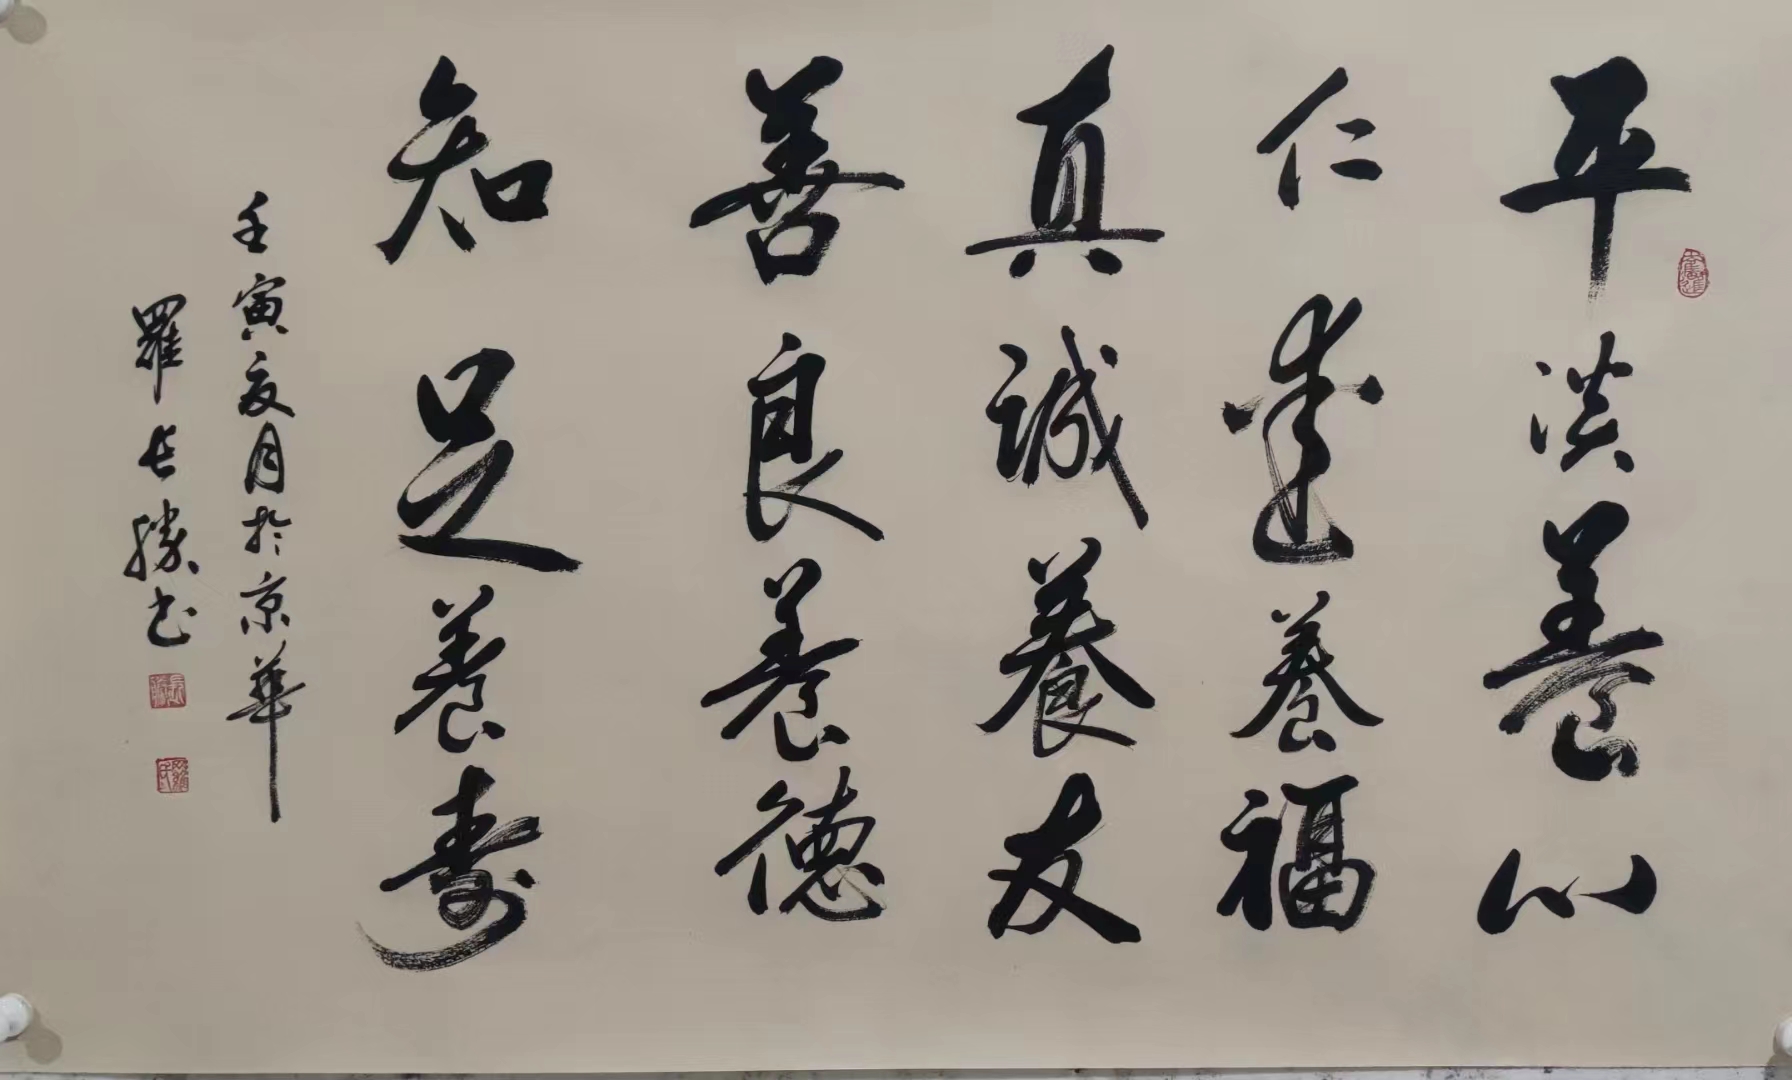 平淡養心
仁養福
真誠養友
善良養德
知足養壽
壬寅夏月於京華
羅长勝书